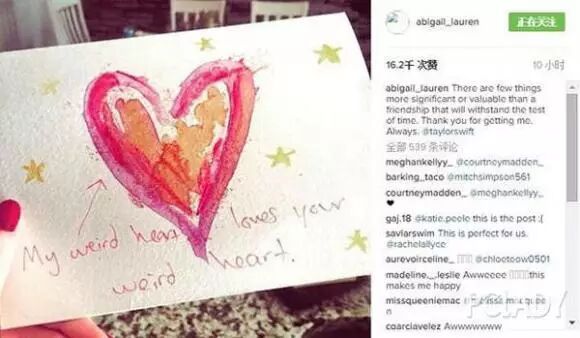 My weird heart loves your
weird heart.
abigail_lauren
正在关注
16.2千 次赞
10 小时
abigail_lauren There are few things
more significant or valuable than a
friendship that will withstand the test
of time. Thank you for getting me.
Always. @taylorswift
全部 539 条评论
meghankellyy_ @courtneymadden_
barking_taco @mitchsimpson561
courtneymadden_ @meghankellyy_
♥
gaj.18 @katie.peele this is the post :(
This is perfect for us.
@rachelallyce
aurevoirceline_ @chloetoow0501
madeline._.leslie Awweeee this
makes me happy
missqueeniemac
Awwwwwwww
PCLADY